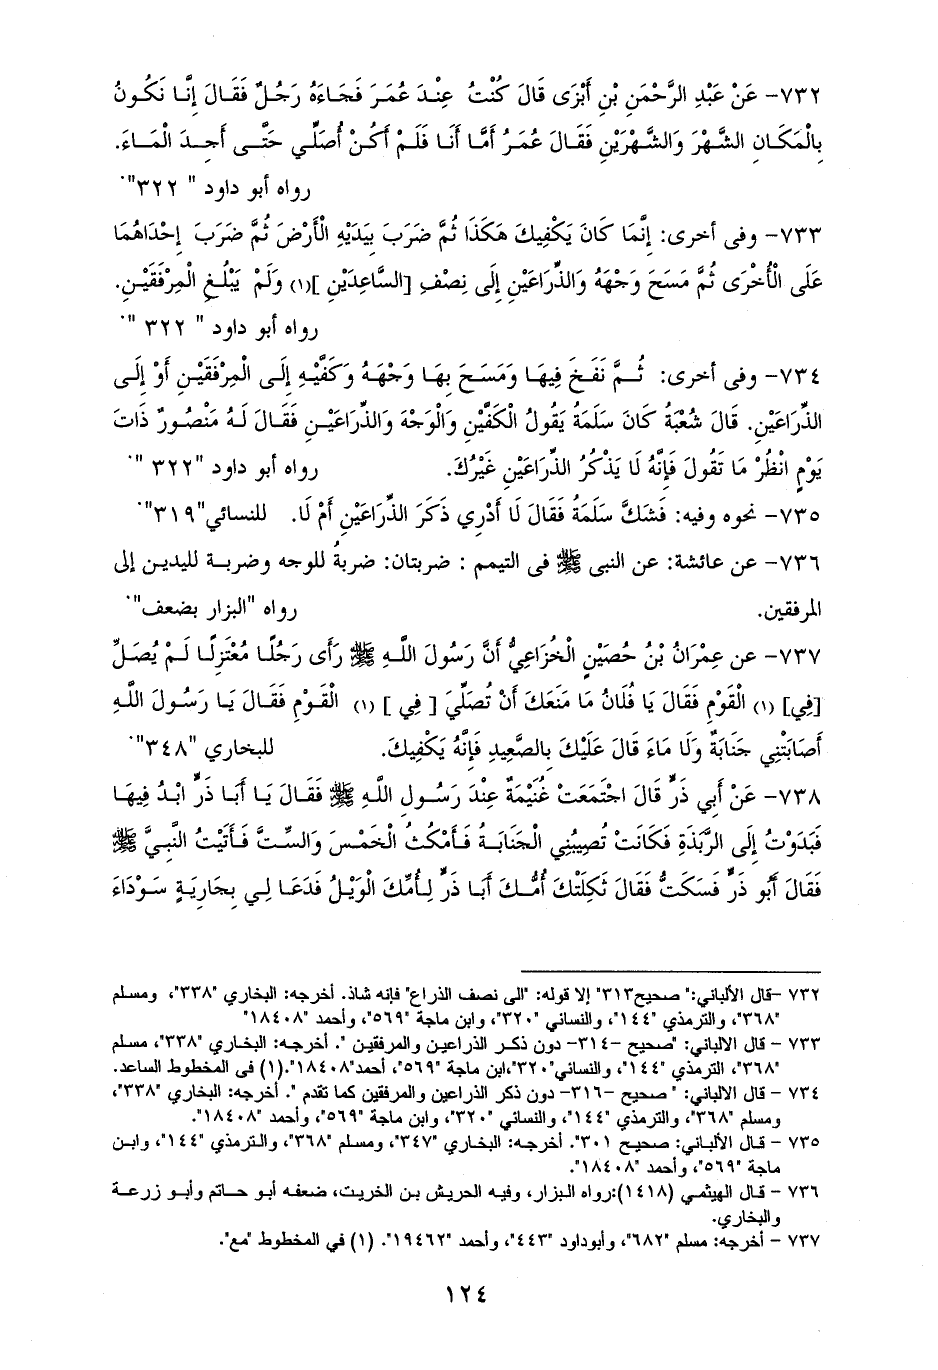 ٧٣٢- عَنْ عَبْدِ الرَّحْمَنِ بْنِ أَبْزَى قَالَ كُنْتُ عِنْدَ عُمَرَ فَجَاءَهُ رَجُلٌ فَقَالَ إِنَّا نَكُونُ
بِالْمَكَانِ الشَّهْرَ وَالشَّهْرَيْنِ فَقَالَ عُمَرُ أَمَّا أَنَا فَلَمْ أَكُنْ أُصَلِّي حَتَّى أَجِدَ الْمَاءَ.
رواه أبو داود " ٣٢٢".
٧٣٣- وفى أخرى: إِنَّمَا كَانَ يَكْفِيكَ هَكَذَا ثُمَّ ضَرَبَ بِيَدَيْهِ الْأَرْضَ ثُمَّ ضَرَبَ إِحْدَاهُمَا
عَلَى الْأُخْرَى ثُمَّ مَسَحَ وَجْهَهُ وَالذِّرَاعَيْنِ إِلَى نِصْفِ [السَّاعِدَيْنِ ](١) وَلَمْ يَبْلُغِ الْمِرْفَقَيْنِ.
رواه أبو داود " ٣٢٢ ".
٧٣٤- وفى أخرى: ثُمَّ نَفَخَ فِيهَا وَمَسَحَ بِهَا وَجْهَهُ وَكَفَّيْهِ إِلَى الْمِرْفَقَيْنِ أَوْ إِلَى
الذِّرَاعَيْنِ. قَالَ شُعْبَةُ كَانَ سَلَمَةُ يَقُولُ الْكَفَّيْنِ وَالْوَجْهَ وَالذِّرَاعَيْنِ فَقَالَ لَهُ مَنْصُورٌ ذَاتَ
يَوْمٍ انْظُرْ مَا تَقُولَ فَإِنَّهُ لَا يَذْكُرُ الذِّرَاعَيْنِ غَيْرُكَ. رواه أبو داود "٣٢٢ ".
٧٣٥- نحوه وفيه: فَشَكَّ سَلَمَةُ فَقَالَ لَا أَدْرِي ذَكَرَ الذِّرَاعَيْنِ أَمْ لَا. للنسائي"٣١٩".
٧٣٦- عن عائشة: عن النبى ﷺ فى التيمم : ضربتان: ضربةُ للوجه وضربة لليدين إلى
المرفقين. رواه "البزار بضعف".
٧٣٧- عن عِمْرَانُ بْنُ حُصَيْنٍ الْخُزَاعِيُّ أَنَّ رَسُولَ اللَّهِ ﷺ رَأَى رَجُلًا مُعْتَزِلًا لَمْ يُصَلِّ
[فِي] (١) الْقَوْمِ فَقَالَ يَا فُلَانُ مَا مَنَعَكَ أَنْ تُصَلِّيَ [ فِي ] (١) الْقَوْمِ فَقَالَ يَا رَسُولَ اللَّهِ
أَصَابَتْنِي جَنَابَةٌ وَلَا مَاءَ قَالَ عَلَيْكَ بِالصَّعِيدِ فَإِنَّهُ يَكْفِيكَ. للبخاري "٣٤٨".
٧٣٨- عَنْ أَبِي ذَرٍّ قَالَ اجْتَمَعَتْ غُنَيْمَةٌ عِنْدَ رَسُولِ اللَّهِ ﷺ فَقَالَ يَا أَبَا ذَرٍّ ابْدُ فِيهَا
فَبَدَوْتُ إِلَى الرَّبَذَةِ فَكَانَتْ تُصِيبُنِي الْجَنَابَةُ فَأَمْكُثُ الْخَمْسَ وَالسِّتَّ فَأَتَيْتُ النَّبِيَّ ﷺ
فَقَالَ أَبُو ذَرٍّ فَسَكَتُّ فَقَالَ ثَكِلَتْكَ أُمُّكَ أَبَا ذَرٍّ لِأُمِّكَ الْوَيْلُ فَدَعَا لِي بِجَارِيَةٍ سَوْدَاءَ
٧٣٢ -قال الألباني:" صحيح٣١٣" إلا قوله: "الى نصف الذراع" فإنه شاذ. أخرجه: البخاري "٣٣٨"، ومسلم
"٣٦٨"، والترمذي "١٤٤"، والنسائي "٣٢٠"، وابن ماجة "٥٦٩"، وأحمد "١٨٤٠٨"
٧٣٣ - قال الالباني: "صحيح -٣١٤- دون ذكر الذراعين والمرفقين ". أخرجه: البخاري "٣٣٨"، مسلم
"٣٦٨"، الترمذي "١٤٤"، والنسائي"٣٢٠"،ابن ماجة "٥٦٩"، أحمد"١٨٤٠٨".(١) فى المخطوط الساعد.
٧٣٤ - قال الالباني: " صحيح -٣١٦- دون ذكر الذراعين والمرفقين كما تقدم ". أخرجه: البخاري "٣٣٨"،
ومسلم "٣٦٨"، والترمذي "١٤٤"، والنسائي "٣٢٠"، وابن ماجة "٥٦٩"، وأحمد "١٨٤٠٨".
٧٣٥ - قال الألباني: صحيح ٣٠١". أخرجه: البخاري "٣٤٧"، ومسلم "٣٦٨"، والترمذي "١٤٤"، وابن
ماجة "٥٦٩"، وأحمد "١٨٤٠٨".
٧٣٦ - قال الهيثمي (١٤١٨):رواه البزار، وفيه الحريش بن الخريت، ضعفه أبو حاتم وأبو زرعة
والبخاري.
٧٣٧ - أخرجه: مسلم "٦٨٢"، وأبوداود "٤٤٣"، وأحمد "١٩٤٦٢". (١) في المخطوط "مع".
١٢٤